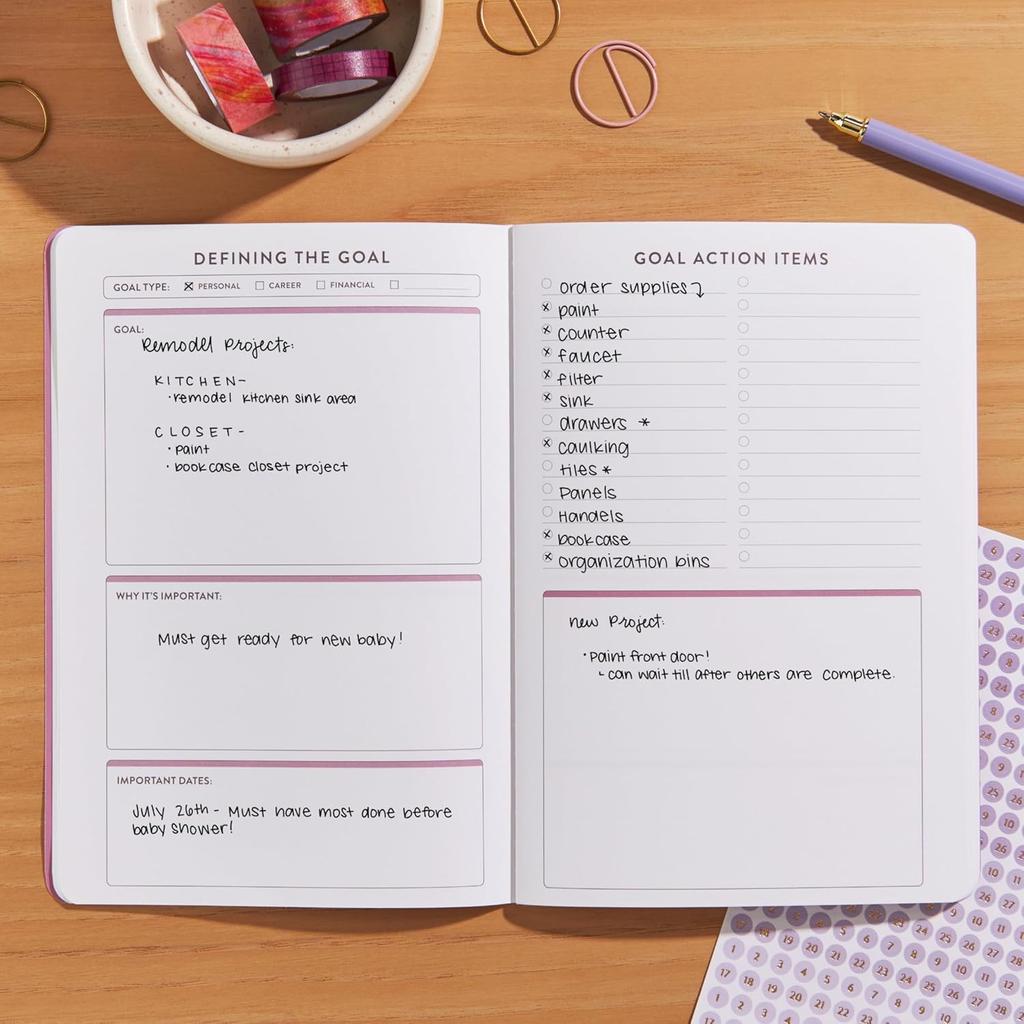 DEFINING THE GOAL
GOAL TYPE: PERSONAL CAREER FINANCIAL
GOAL:
Remodel Projects:
KITCHEN-
·remodel kitchen sink area
CLOSET-
·paint
·bookcase closet project
WHY IT'S IMPORTANT:
Must get ready for new baby!
IMPORTANT DATES:
July 26th - Must have most done before
baby shower!
GOAL ACTION ITEMS
order supplies
paint
counter
faucet
filter
sink
drawers *
caulking
tiles *
Panels
Handels
bookcase
organization bins
new Project:
·Paint front door!
can wait till after others are complete.